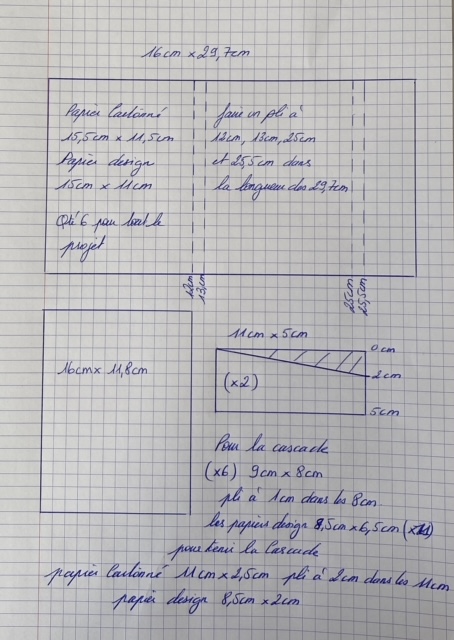 16cm x 29,7cm
Papier Cartonné
15,5cm x 11,5cm
Papier design
15cm x 11cm
Qté 6 pour tout le
projet
faire un pli à
12cm, 13cm, 25cm
et 25,5cm dans
la longueur des 29,7cm
12cm
13cm
25cm
25,5cm
16cm x 11,8cm
11cm x 5cm
0cm
2cm
5cm
(x2)
Pour la cascade
(x6) 9cm x 8cm
pli à 1cm dans les 8cm
les papiers design 8,5cm x 6,5cm
pour tenir la Cascade
papier Cartonné 11cm x 2,5cm pli à 2cm dans les 11cm
papier design 8,5cm x 2cm